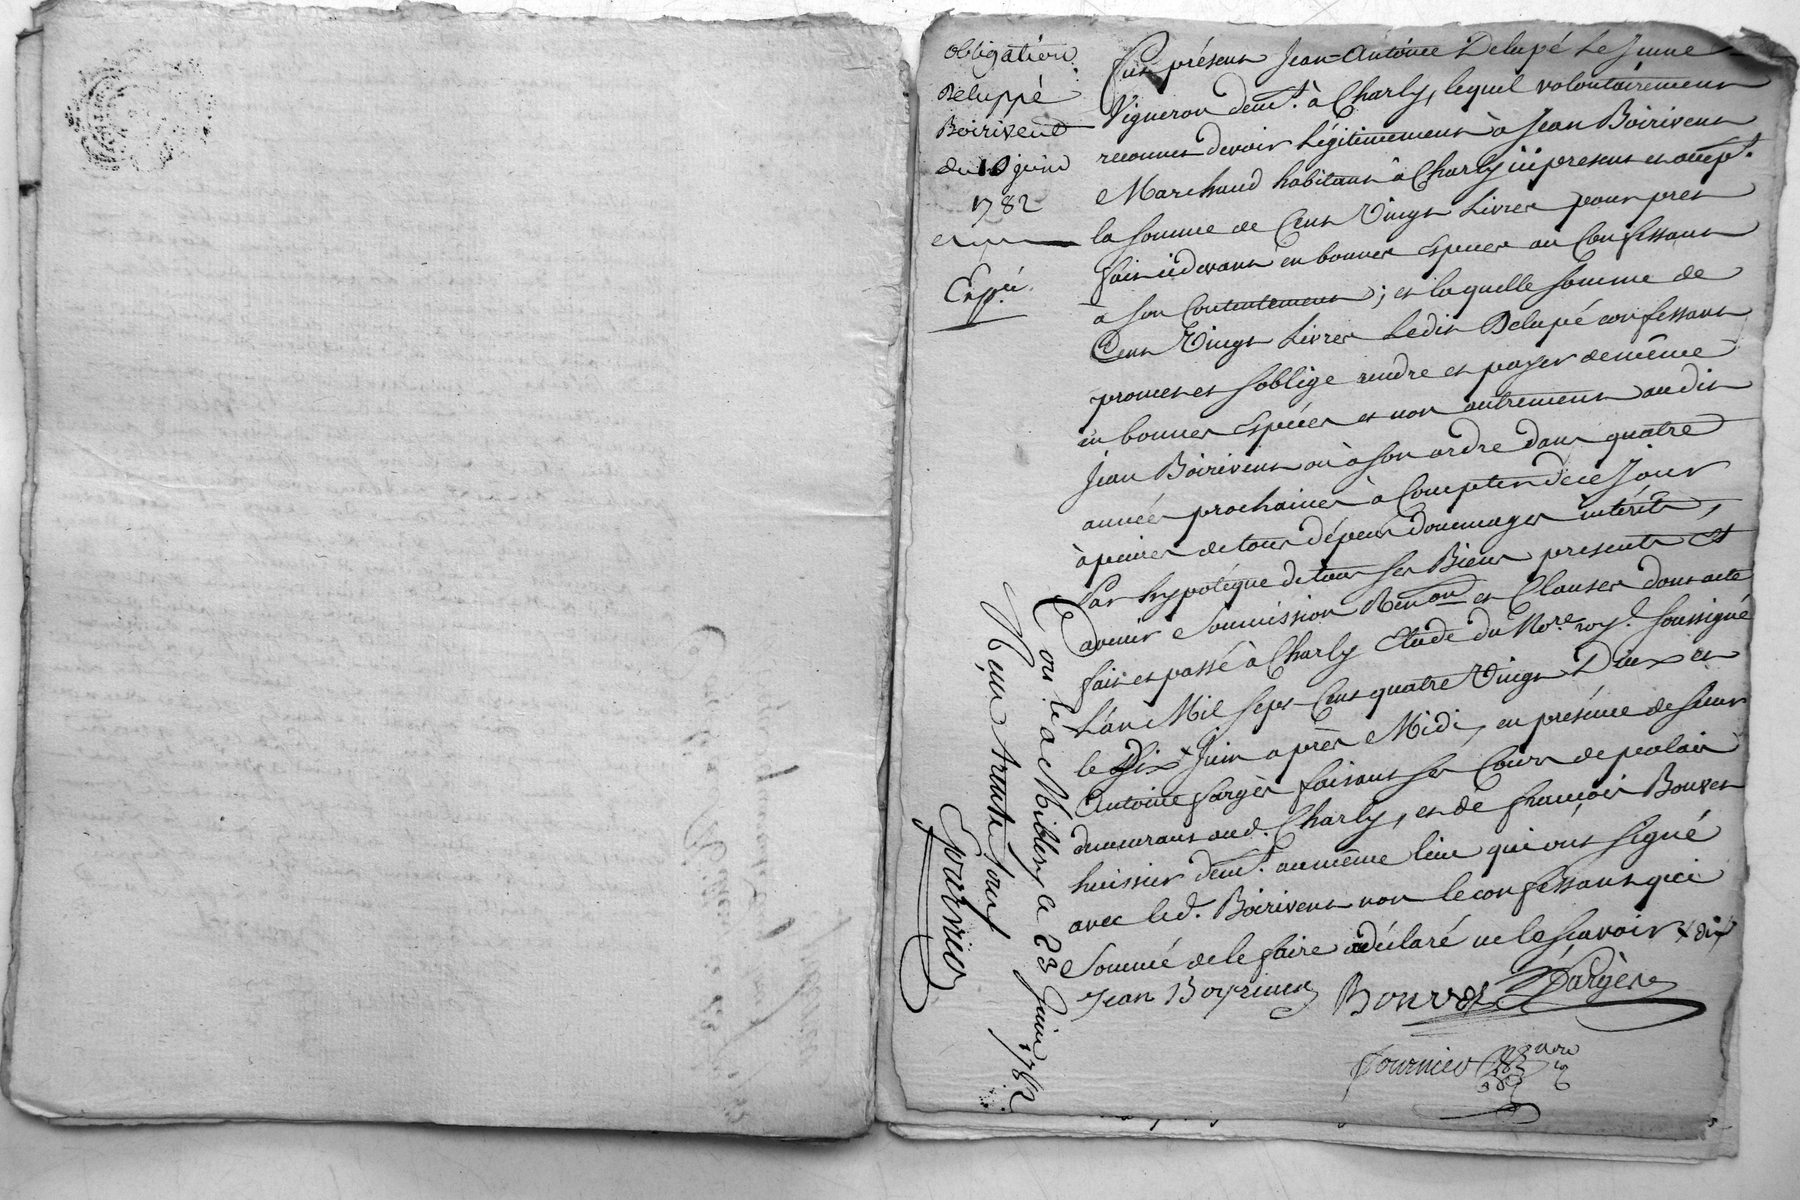 obligation
Deluppé
Boirivent
du 10 juin
1782
Expéé.
Fut présent Jean-Antoine Delupé Le Jeune
Vigneron demt. à Charly, lequel volontairement
reconnet devoir Légitimement à Jean Boirivent
Marchand habitant à Charly ici present et accept.
la somme de Cent Vingt Livres pour pret
fait cidevant en bonnes Especes au Confessant
à son Contentement; et laquelle somme de
Cent Vingt Livres Ledit Delupé confessant
promet et s'oblige rendre et payer de même
en bonnes Espéces et non autrement audit
Jean Boirivent ou à son ordre dans quatre
années prochaines à Compter de ce Jour
à peines de tous dépens dommages intérêts,
Par hypotéque de tous ses Biens presents et
avenir Soumission Renon. et Clauses dont acte
fait et passé à Charly Etude du Nore. roy. soussigné
L'an Mil sept Cent quatre Vingt Deux et
le Dix x Juin après Midi, en présence de sieur
Antoine fargès faisant ses Cours de palais
demeurant aud. Charly, et de françois Bouvet
huissier demt. au même lieu qui ont signé
avec led. Boirivent non le confessant qui
Sommé de le faire a déclaré ne le sçavoir x dix
Jean Boyriven Bouvet Fargès
fournier Nore
Con.lé a Millery le 23 Juin 1782
Reçu trente sous
Fournier